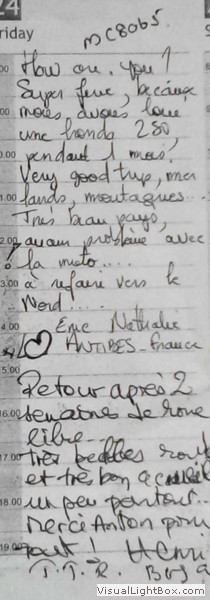 24
Friday
MC8065
How are you?
Super fine, because
nous avons loué
une honda 250,
pendant 1 mois.
Very good trip, mer
lands, montagnes...
Très beau pays,
aucun problème avec
la moto....
à refaire vers le
Nord....
Eric Nathalie
ANTIBES - France
Retour après 2
semaines de roue
libre...
très belles routes
et très bon accueil
un peu partout..
Merci Anton pour
tout! Henri
VisualLightBox.com